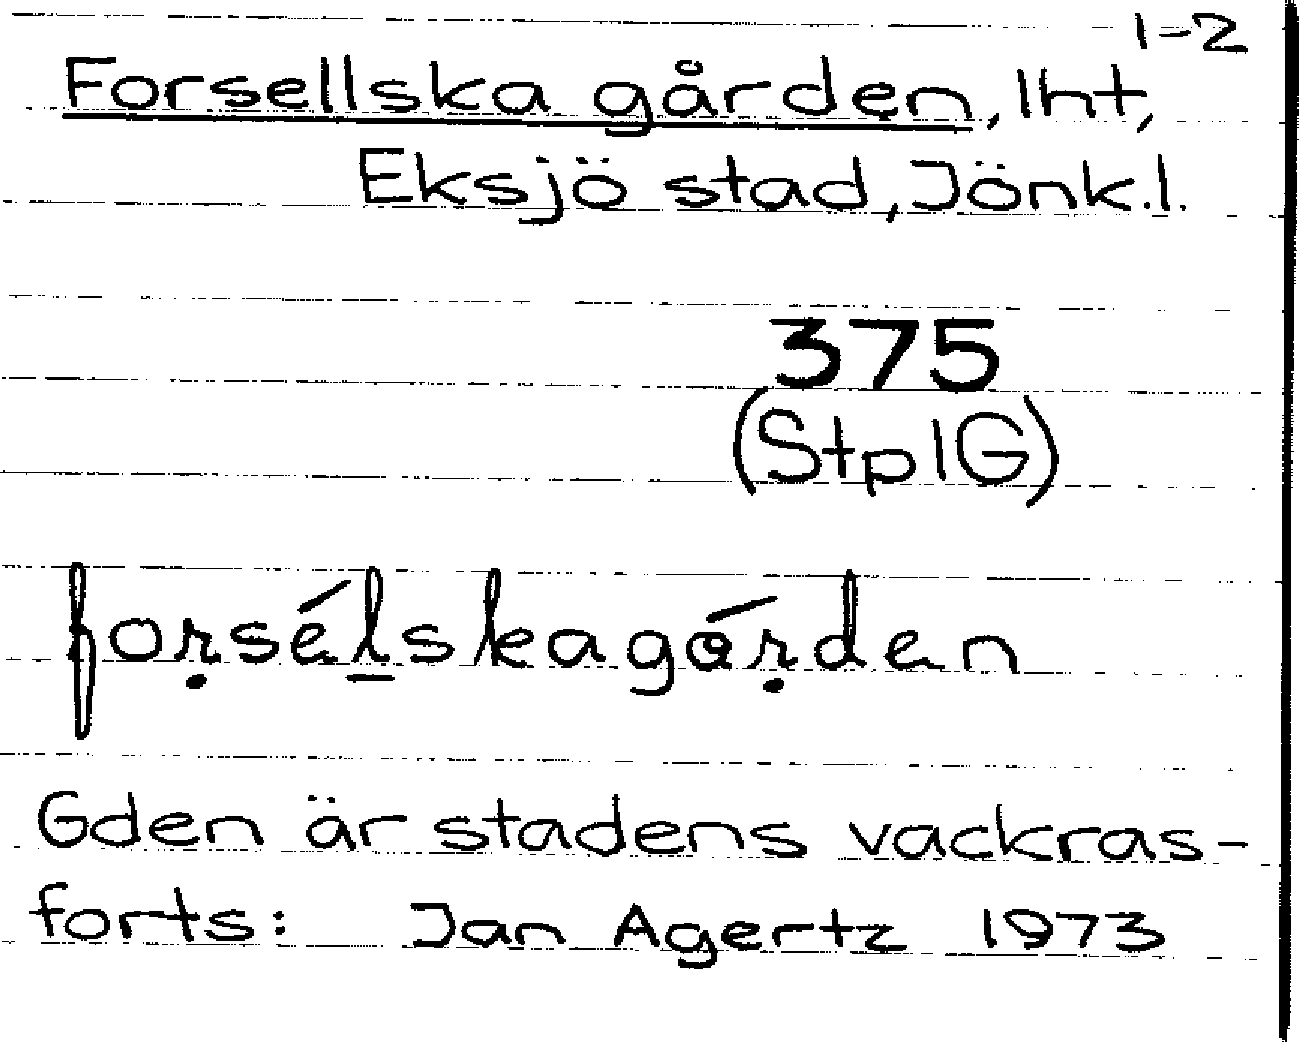 1-2
Forsellska gården, lht,
Eksjö stad, Jönk.l.
375
(StplG)
forsélskagárden
Gden är stadens vackras-
forts: Jan Agertz 1973